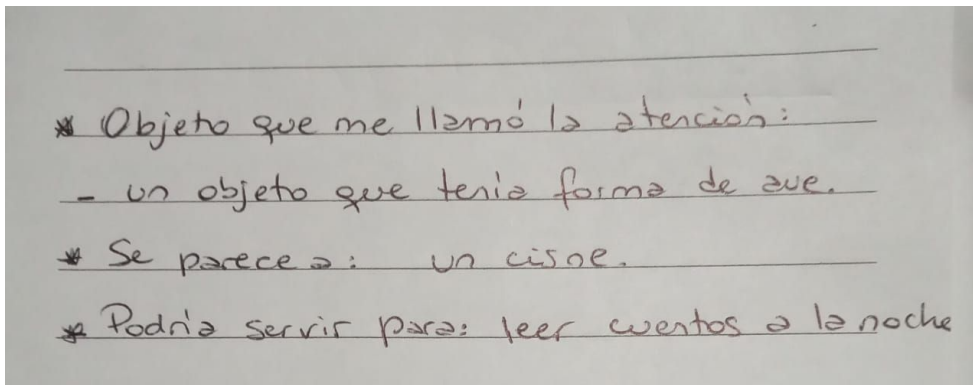 * Objeto que me llamó la atención:
- un objeto que tenia forma de ave.
* Se parece a: un cisne.
* Podría servir para: leer cuentos a la noche